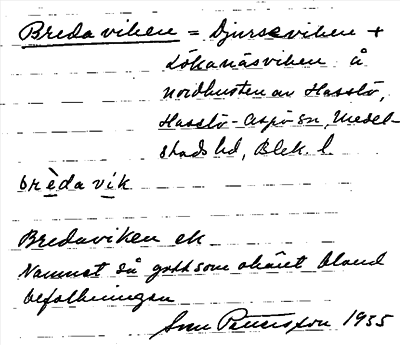 Bredaviken = Djurseviken +
Lökanäsviken å
nordkusten av Hasslö,
Hasslö-Aspö sn, Medel-
stads hd, Blek. l.
brèda vik
Bredaviken ek
Namnet så gott som okänt bland
befolkningen
Sven 1935